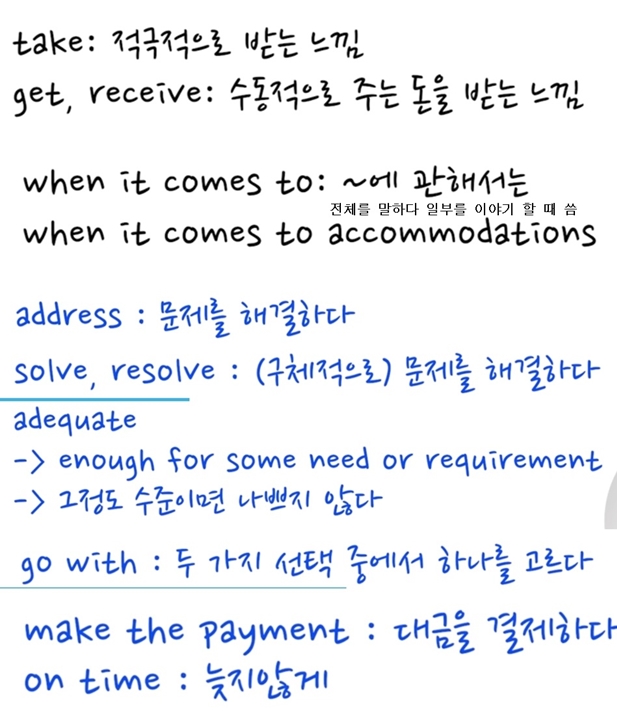 take: 적극적으로 받는 느낌
get, receive: 수동적으로 주는 돈을 받는 느낌
when it comes to: ~에 관해서는
전체를 말하다 일부를 이야기 할 때 씀
when it comes to accommodations
address : 문제를 해결하다
solve, resolve : (구체적으로) 문제를 해결하다
adequate
-> enough for some need or requirement
-> 그정도 수준이면 나쁘지 않다
go with : 두 가지 선택 중에서 하나를 고르다
make the payment : 대금을 결제하다
on time : 늦지않게